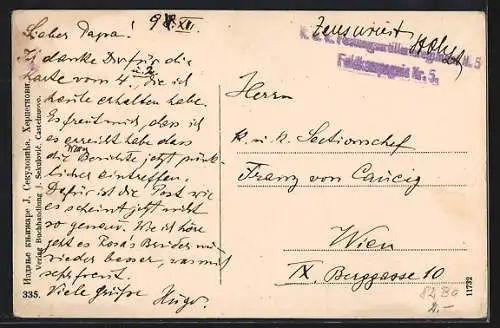 Lieber Papa! 9. XII.
Ich danke Dir für die
Karte vom 4. u. 5., die ich
heute erhalten habe.
Es freut mich, dass ich
es erreicht habe dass
die Berichte jetzt pünkt-
licher eintreffen.
Dafür ist die Post wie
es scheint jetzt nicht
so genau. Wie ich höre
geht es Rosa's Bruder
wieder besser, was mich
sehr freut.
Viele Grüsse Hugo.
Zensuriert
K. u. K. Festungsartillerieregiment Nr. 5
Feldkompagnie Nr. 5.
Herrn
k. u. k. Sectionschef
Franz von Caucig
Wien
IX. Berggasse 10
Издање књижаре Ј. Секуловића. Херцегнови
Verlag Buchhandlung J. Sekulović. Castelnuovo.
335.
11732
2.-